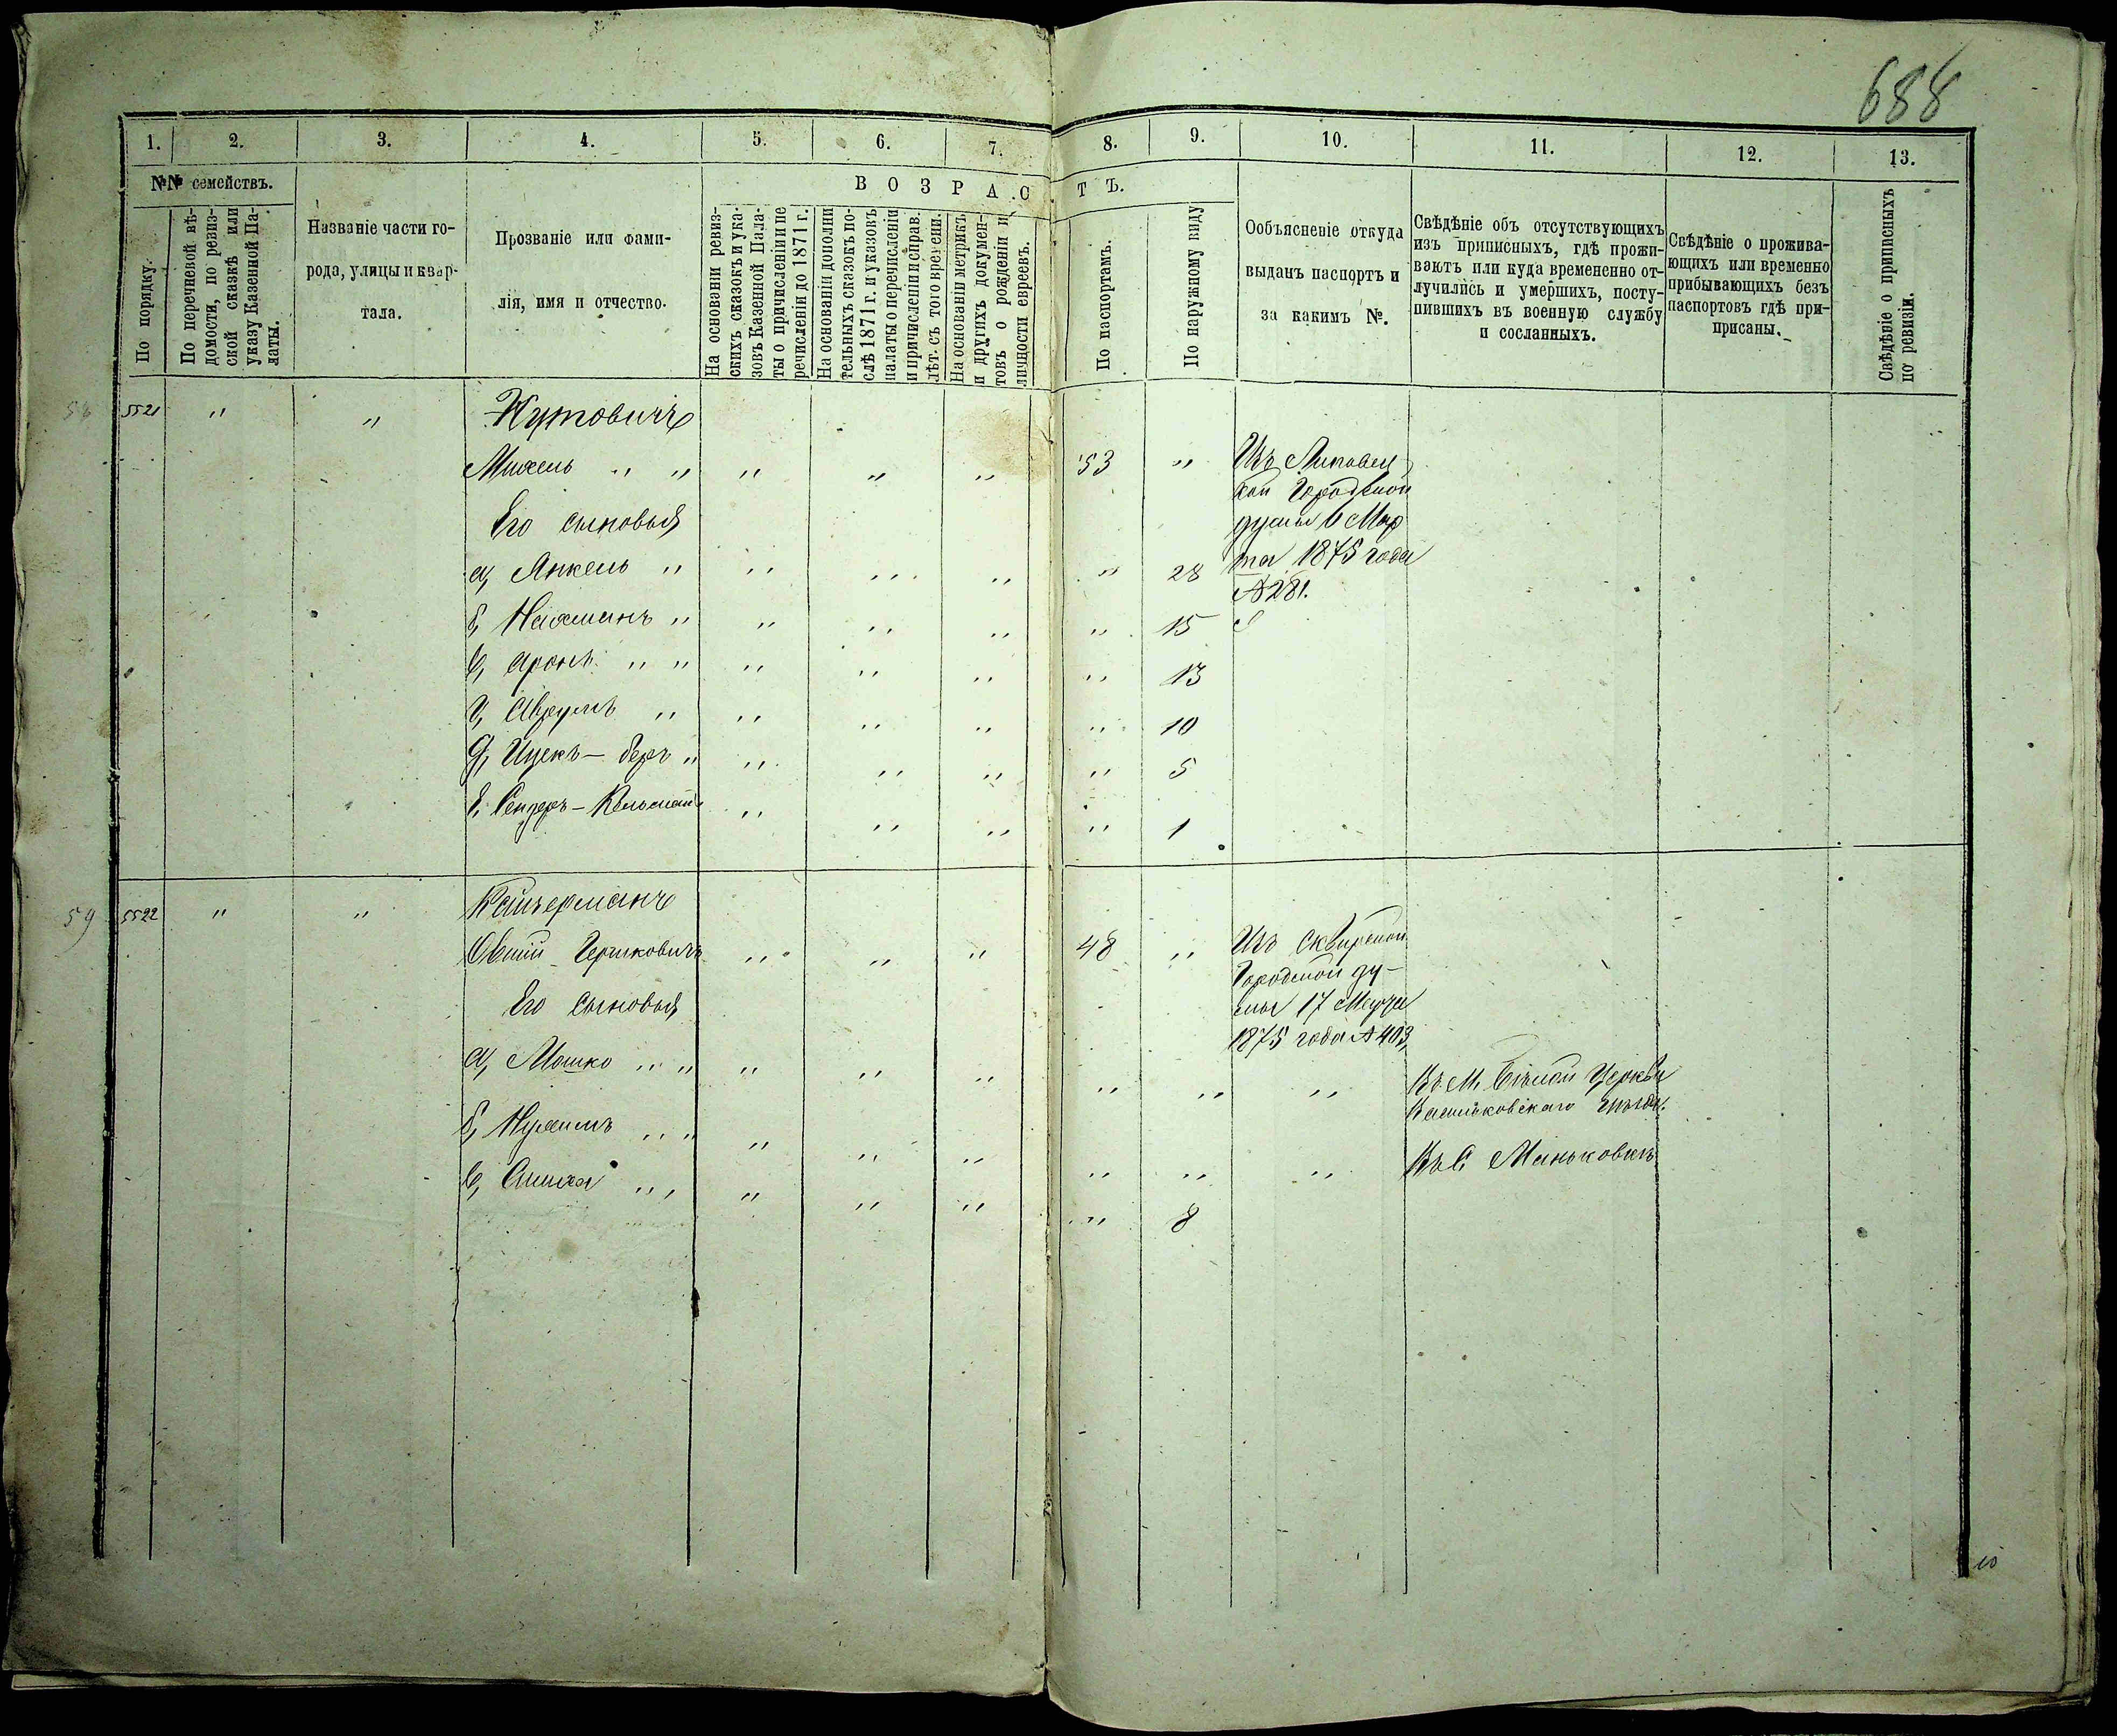 688
1. 2. 3. 4. 5. 6. 7. 8. 9. 10. 11. 12. 13.
№№ семействъ.
По порядку.
По перечневой вѣ-
домости, по ревиз-
ской сказкѣ или
указу Казенной Па-
латы.
Названіе части го-
рода, улицы и квар-
тала.
Прозваніе или фами-
лія, имя и отчество.
ВОЗРАСТЪ.
На основаніи ревиз-
скихъ сказокъ и ука-
зовъ Казенной Пала-
ты о причисленіи и пе
речисленіи до 1871 г.
На основаніи дополни
тельныхъ сказокъ по-
слѣ 1871 г. и указовъ
палаты о перечисленіи
и причисленіи и справ.
лѣт. съ того времени.
На основаніи метрикъ
и другихъ докумен-
товъ о рожденіи и
личности евреевъ.
По паспортамъ.
По наружному виду
Ообъясненіе откуда
выданъ паспортъ и
за какимъ №.
Свѣдѣніе объ отсутствующихъ
изъ приписныхъ, гдѣ прожи-
ваютъ или куда времененно от-
лучились и умершихъ, посту-
пившихъ въ военную службу
и сосланныхъ.
Свѣдѣніе о прожива-
ющихъ или временно
прибывающихъ безъ
паспортовъ гдѣ при-
присаны.
Свѣдѣніе о приписныхъ
по ревизіи.
5521 " "
Михель " " " " " 53 "
Изъ Липовец-
кой Городской
думы 6 Мар
та 1875 года
№ 281.
Его сыновья
а, Янкель " " " " " 28
б, Нахманъ " " " " " 15
в, Аронъ " " " " " " 13
г, Аврумъ " " " " " 10
д, Ицекъ - Беръ " " " " " 5
е, Сендеръ - " " " " 1
59 5522 " "
Гершковичъ " " " 48 "
Изъ Сквирской
Городской ду-
мы 17 Марта
1875 года № 403,
Его сыновья
а, Мошко " " " " " " " "
Въ М. Бѣлой Церкви
Васильковскаго уѣзда.
б, Нухимъ " " " " " " " "
Въ С Маньковкѣ
в, " " " " " " 8